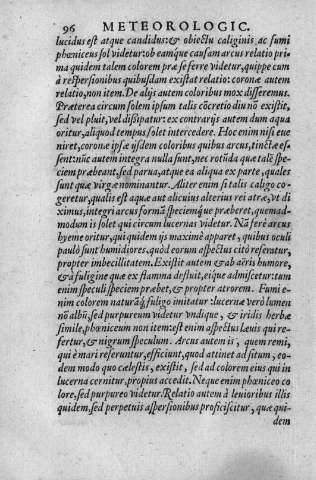 96 METEOROLOGIC.
lucidus est atque candidus: & obiectu caliginis ac fumi
phœniceus sol videtur: ob eamque causam arcus relatio pri
ma quidem talem colorem præ se ferre videtur, quippe cum
à respersionibus quibusdam existat relatio: coronæ autem
relatio, non item. De alijs autem coloribus mox disseremus.
Præterea circum solem ipsum talis cōcretio diu nō existit,
sed vel pluit, vel dissipatur: ex contrarijs autem dum aqua
oritur, aliquod tempus solet intercedere. Hoc enim nisi eue
niret, coronæ ipsæ ijsdem coloribus quibus arcus, tinctæ es-
sent: nūc autem integra nulla sunt, nec rotūda quæ talē spe-
ciem præbeant, sed parua, atque ea aliqua ex parte, quales
sunt quæ virgæ nominantur. Aliter enim si talis caligo co-
geretur, qualis est aquæ aut alicuius alterius rei atræ, vt di
ximus, integri arcus formā speciemq́ue præberet, quemad-
modum is solet qui circum lucernas videtur. Nā ferè arcus
hyeme oritur, qui quidem ijs maximè apparet, quibus oculi
paulò sunt humidiores. quòd eorum aspectus citò referatur,
propter imbecillitatem. Existit autem & ab aëris humore,
& à fuligine quæ ex flamma defluit, eique admiscetur: tum
enim speculi speciem præbet, & propter atrorem. Fumi e-
nim colorem naturāq́; fuligo imitatur: lucernæ verò lumen
nō albū, sed purpureum videtur vndique, & iridis herbæ
simile, phœniceum non item: est enim aspectus læuis qui re-
fertur, & nigrum speculum. Arcus autem is, quem remi,
qui è mari referuntur, efficiunt, quod attinet ad situm, eo-
dem modo quo cælestis, existit, sed ad colorem eius qui in
lucerna cernitur, propius accedit. Neque enim phœniceo co
lore, sed purpureo videtur. Relatio autem à leuioribus illis
quidem, sed perpetuis aspersionibus proficiscitur, quæ qui-
dem